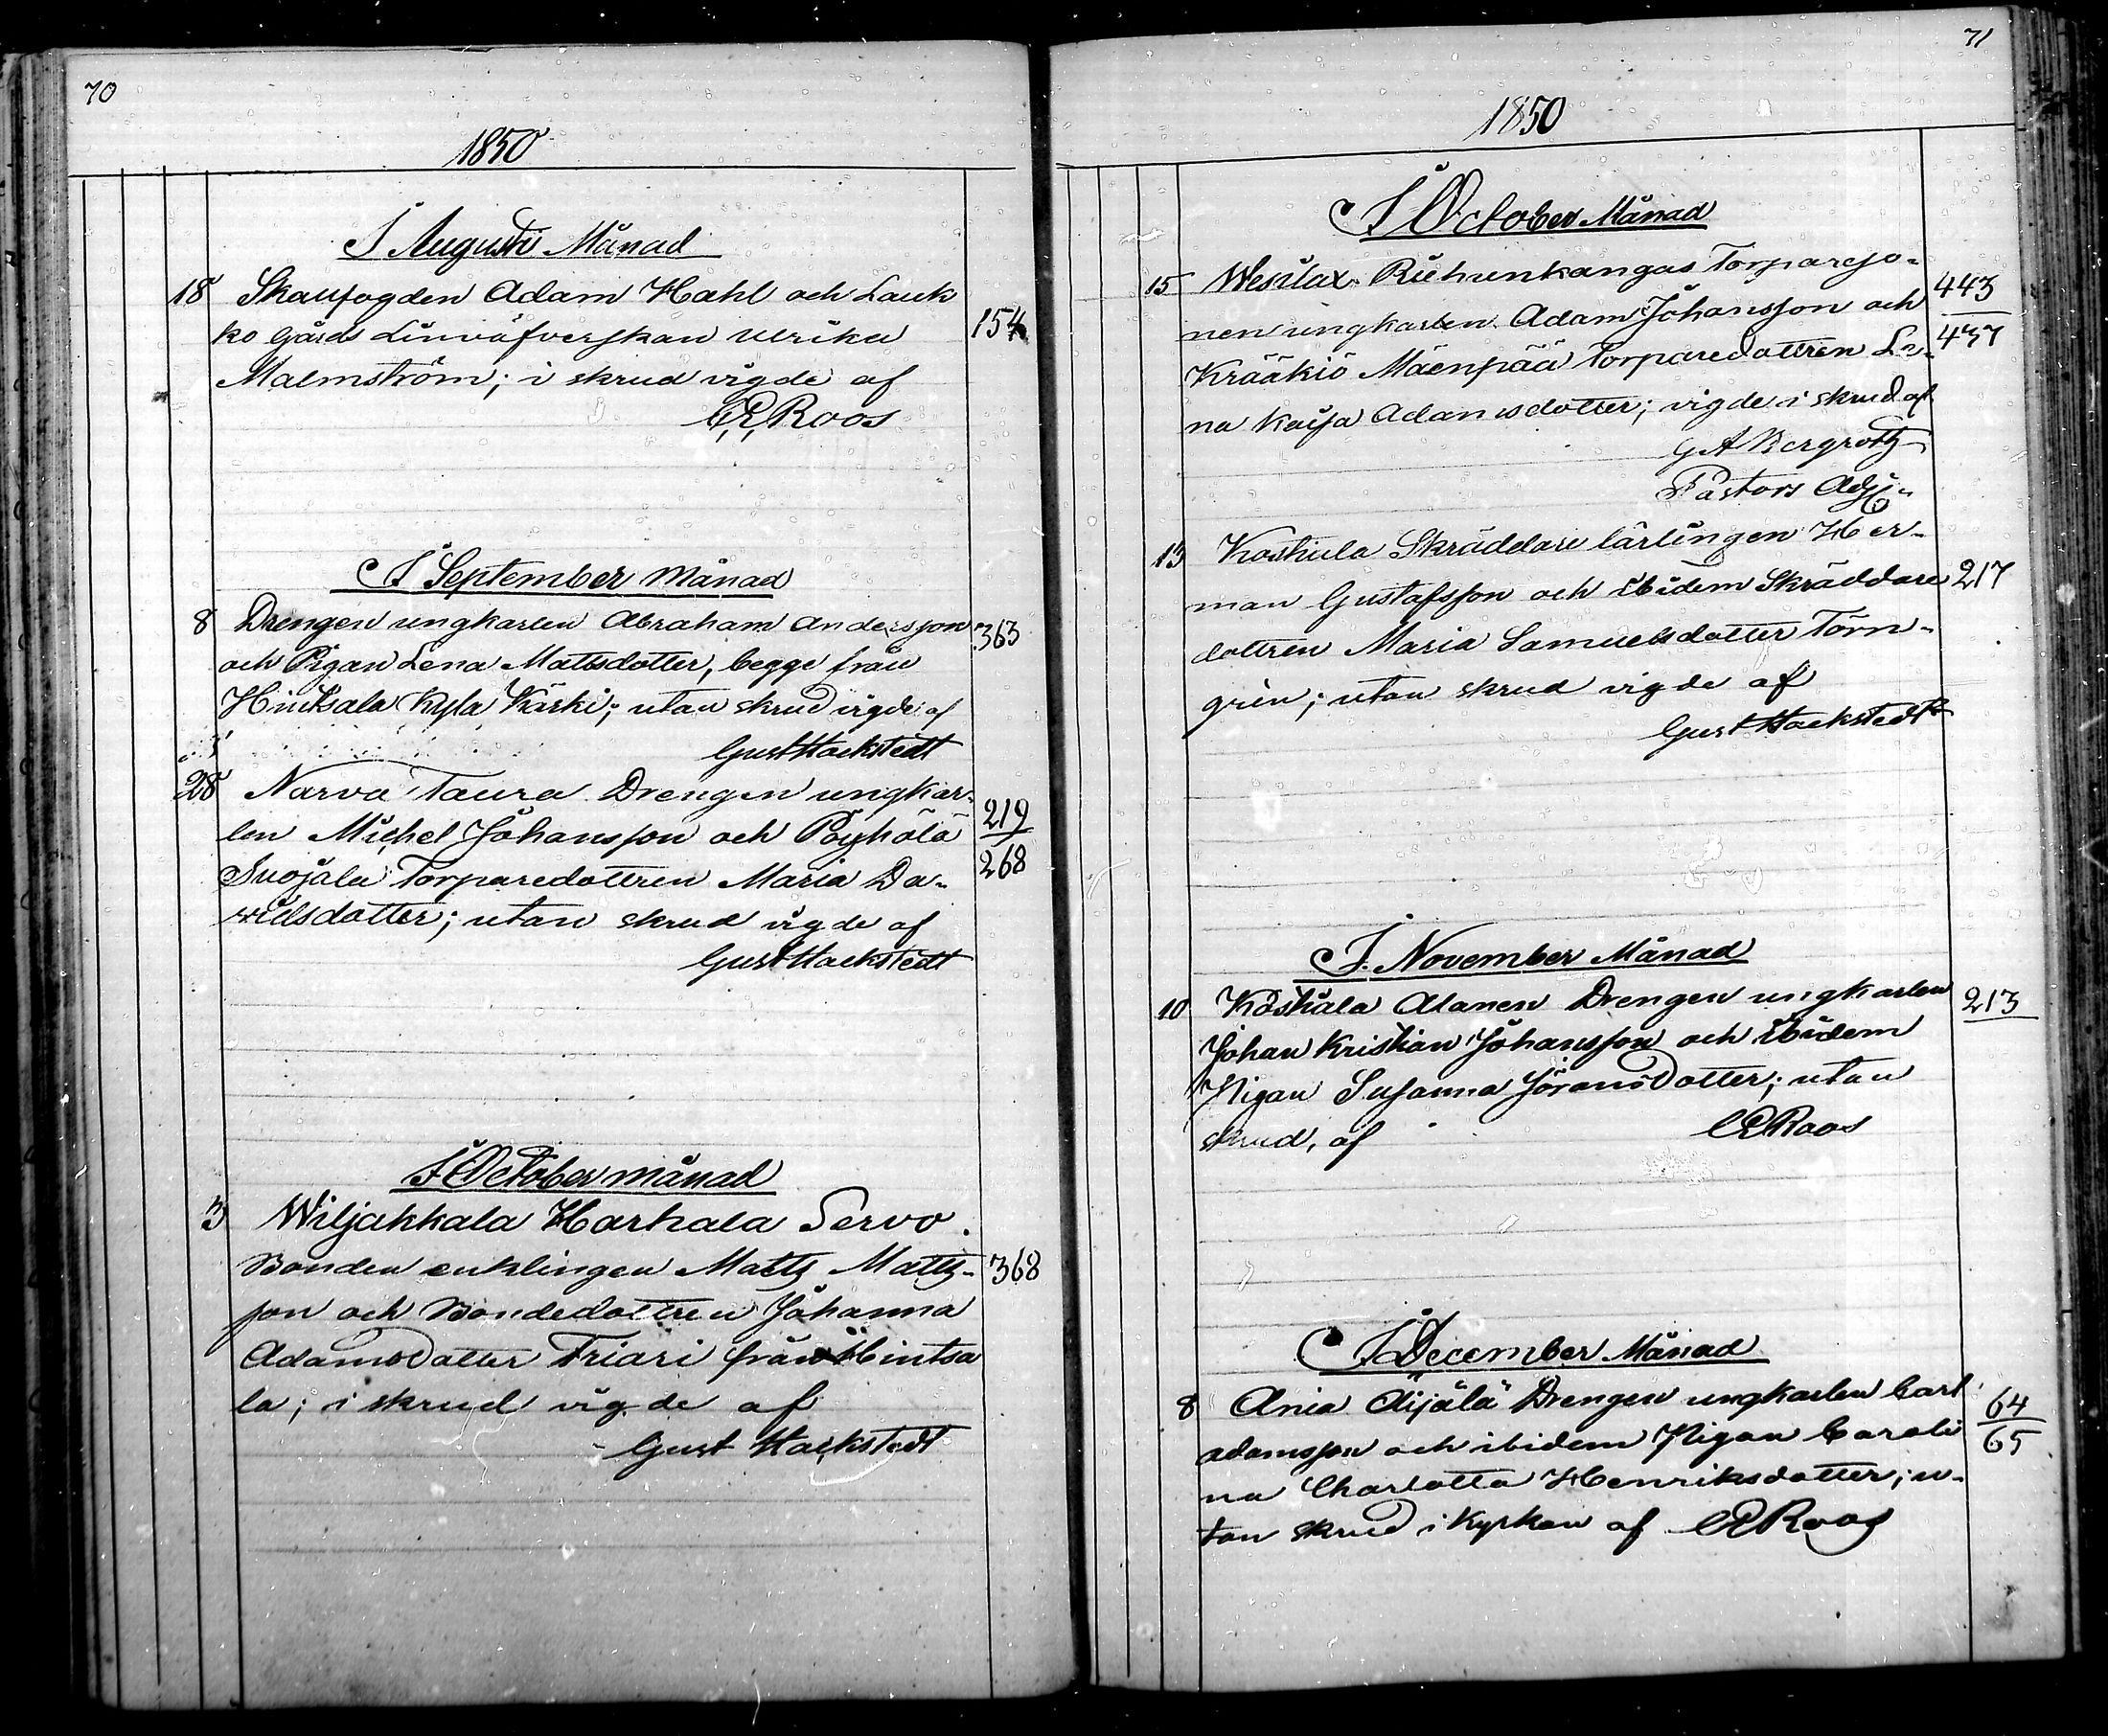 70
1850
I Augusti Månad
18 Skaufogden Adam Hahl och Lauk
ko Gårds Linväfverskan Ulrika 154
Malmström; i skrud vigde af
C. E. Roos
I September Månad
8 Drengen ungkarlen Abraham Andersson 363
och Pigan Lena Mattsdotter, begge från
Hintsala Kyla Kärki; utan skrud vigde af
Gust Hackstedt
28 Narva Taura Drengen ungkar-
len Michel Johansson och Pöyhölä 219
268
Suojala Torparedottren Maria Da-
vidsdotter; utan skrud vigde af
Gust Hackstedt
I October månad
3 Wiljakkala Harhala Servo
Bonden enklingen Matts Matts- 368
son och Bondedottren Johanna
Adamsdotter Friari från Hintsa
la; i skrud vigde af
Gust Hackstedt
71
1850
I October Månad
15 Wesilax Riehunkangas Torpareso-
nen ungkarlen Adam Johansson och 443
437
Krääkiö Mäenpää Torparedottren Le-
na Kaisa Adamsdotter; vigde i skrud af
G A Bergroth
Pastors Adj.
13 Koskula Skräddare lärlingen Her-
man Gustafsson och ibidem Skräddare 217
dottren Maria Samuelsdotter Törn-
gren; utan skrud vigde af
Gust Hackstedt
I November Månad
10 Koskula Alanen Drengen ungkarlen 213
Johan Kristian Johansson och ibidem
Pigan Susanna Jöransdotter; utan
skrud, af CERoos
I December Månad
8 Ania Äijälä Drengen ungkarlen Carl 64
65
Adamsson och ibidem Pigan Caroli
na Charlotta Henriksdotter; u-
tan skrud i Kyrkan af CERoos